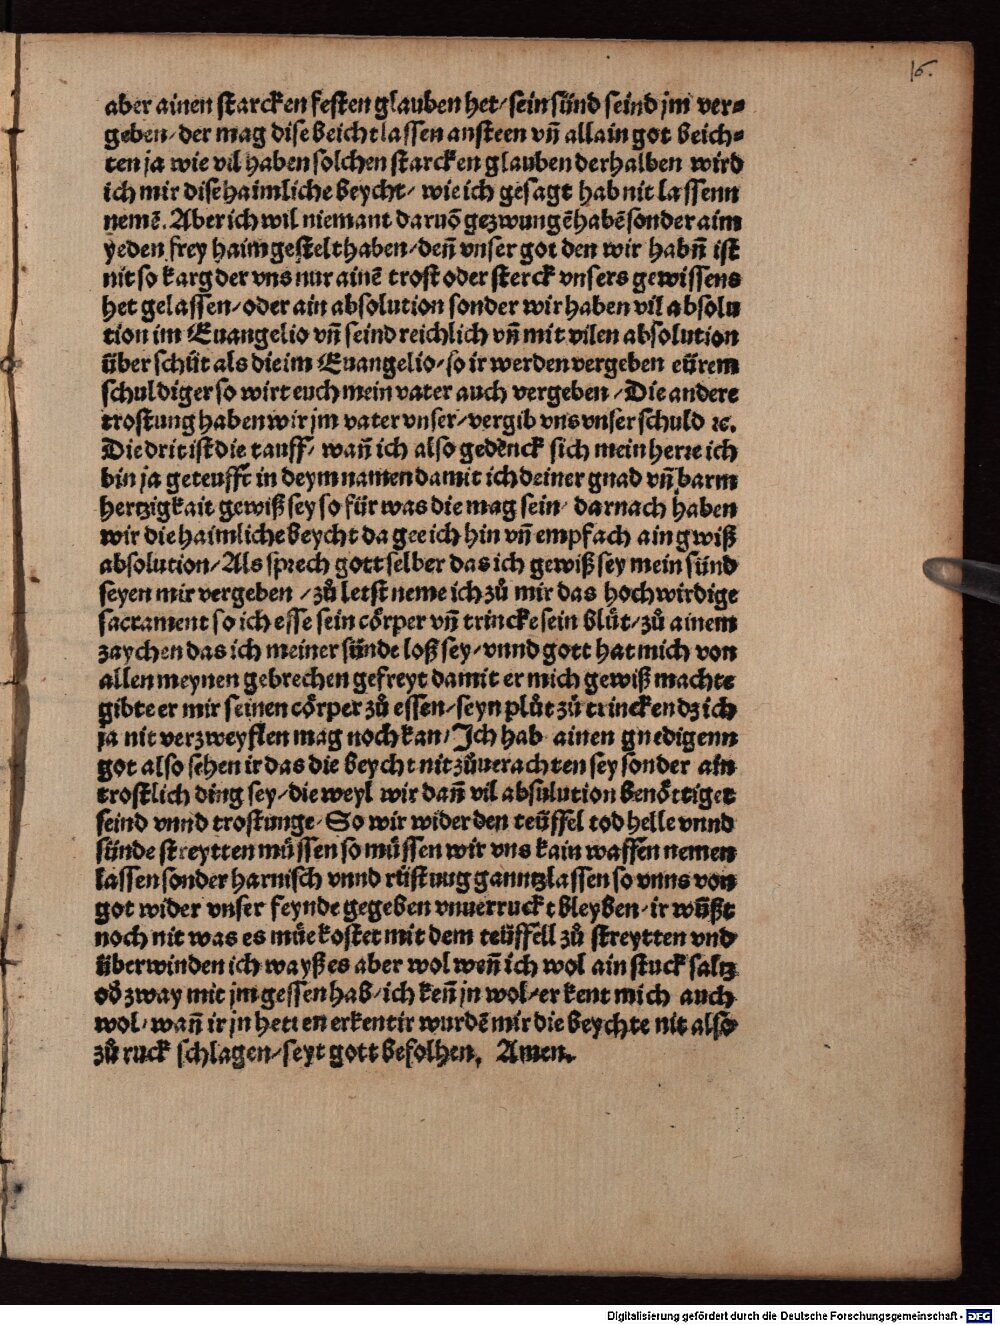 16.
aber ainen starcken festen glauben het/ sein sünd seind jm ver⸗
geben/ der mag dise beicht lassen ansteen vñ allain got beich⸗
ten ja wie vil haben solchen starcken glauben derhalben wird
ich mir dise haimliche beycht/ wie ich gesagt hab nit lassenn
nemē. Aber ich wil niemant daruō gezwungē habē sonder aim
yeden frey haim gestelt haben/ den̄ vnser got den wir habn̄ ist
nit so karg der vns nur ainē trost oder sterck vnsers gewissens
het gelassen/ oder ain absolution sonder wir haben vil absolu
tion im Euangelio vñ seind reichlich vñ mit vilen absolution
über schüt als die im Euangelio/ so ir werden vergeben eürem
schuldiger so wirt euch mein vater auch vergeben / Die andere
trostung haben wir jm vater vnser/ vergib vns vnser schuld ꝛc.
Die drit ist die tauff/ wan̄ ich also gedēnck sich mein herre ich
bin ja geteufft in deym namen damit ich deiner gnad vñ barm
hertzigkait gewiß sey so für was die mag sein/ darnach haben
wir die haimliche beycht da gee ich hin vñ empfach ain gwiß
absolution/ Als sprech gott selber das ich gewiß sey mein sünd
seyen mir vergeben / zů letst neme ich zů mir das hochwirdige
sacrament so ich esse sein cörper vñ trincke sein blůt/ zů ainem
zaychen das ich meiner sünde loß sey/ vnnd gott hat mich von
allen meynen gebrechen gefreyt damit er mich gewiß machte
gibte er mir seinen cörper zů essen/ seyn plůt zů trincken dz ich
ja nit verzweyflen mag noch kan/ Ich hab ainen gnedigenn
got also sehen ir das die beycht nit zůuerachten sey sonder ain
trostlich ding sey/ die weyl wir dan̄ vil absulution benöttiget
seind vnnd trostunge/ So wir wider den teüffel tod helle vnnd
sünde streytten müssen so müssen wir vns kain waffen nemen
lassen sonder harnisch vnnd rüstuug ganntz lassen so vnns von
got wider vnser feynde gegeben vnuerruckt bleyben/ ir wüßt
noch nit was es müe kostet mit dem teüffell zů streytten vnd
überwinden ich wayß es aber wol wen̄ ich wol ain stuck saltz
oð zway mit jm gessen hab/ ich ken̄ jn wol/ er kent mich auch
wol/ wan̄ ir jn hetten erkent ir wurdē mir die beychte nit also
zů ruck schlagen/ seyt gott befolhen. Amen.
Digitalisierung gefördert durch die Deutsche Forschungsgemeinschaft - DFG